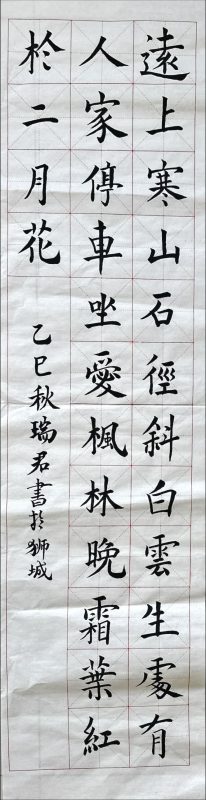 遠上寒山石徑斜白雲生處有
人家停車坐愛楓林晚霜葉紅
於二月花
乙巳秋瑞君書於獅城